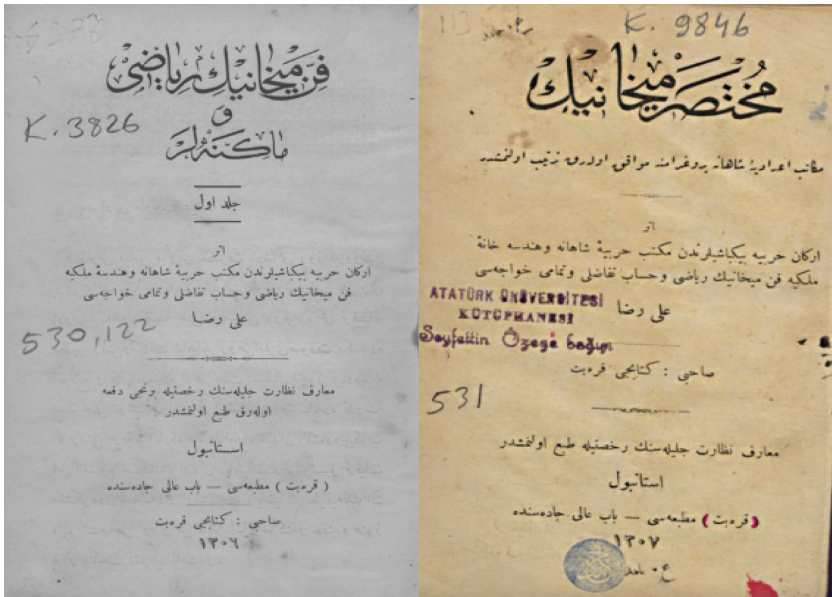 K. 3826
فن ميخانيك رياضى
و
ماكنه‌لر
جلد اول
اثر
اركان حربيه بيكباشيلرندن مكتب حربيۀ شاهانه و هندسۀ ملكيه
فن ميخانيك رياضى و حساب تفاضلى و تمامى خواجه‌سى
على رضا
530,122
معارف نظارت جليله‌سنك رخصتيله برنجى دفعه
اوله‌رق طبع اولنمشدر
استانبول
( قره‌بت ) مطبعه‌سى — باب عالى جاده‌سنده
صاحبى : كتابجى قره‌بت
١٣٠٦
K. 9846
مُختصر ميخانيك
مكاتب اعداديۀ شاهانه پروغرامنه موافق اوله‌رق ترتيب اولنمشدر
اثر
اركان حربيه بيكباشيلرندن مكتب حربيۀ شاهانه و هندسه خانۀ
ملكيه فن ميخانيك رياضى و حساب تفاضلى و تمامى خواجه‌سى
على رضا
ATATÜRK ÜNİVERSİTESİ
KÜTÜPHANESİ
Seyfettin Özege bağışı
صاحبى : كتابجى قره‌بت
531
معارف نظارت جليله‌سنك رخصتيله طبع اولنمشدر
استانبول
( قره‌بت ) مطبعه‌سى — باب عالى جاده‌سنده
١٣٠٧